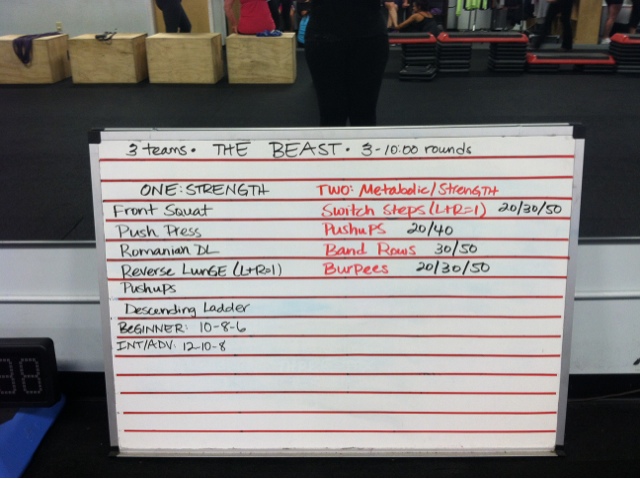 3 teams • THE BEAST • 3-10:00 rounds
ONE: STRENGTH
Front Squat
Push Press
Romanian DL
Reverse Lunge (L+R=1)
Pushups
Descending Ladder
BEGINNER: 10-8-6
INT/ADV: 12-10-8
TWO: Metabolic/Strength
Switch Steps (L+R=1) 20/30/50
Pushups 20/40
Band Rows 30/50
Burpees 20/30/50